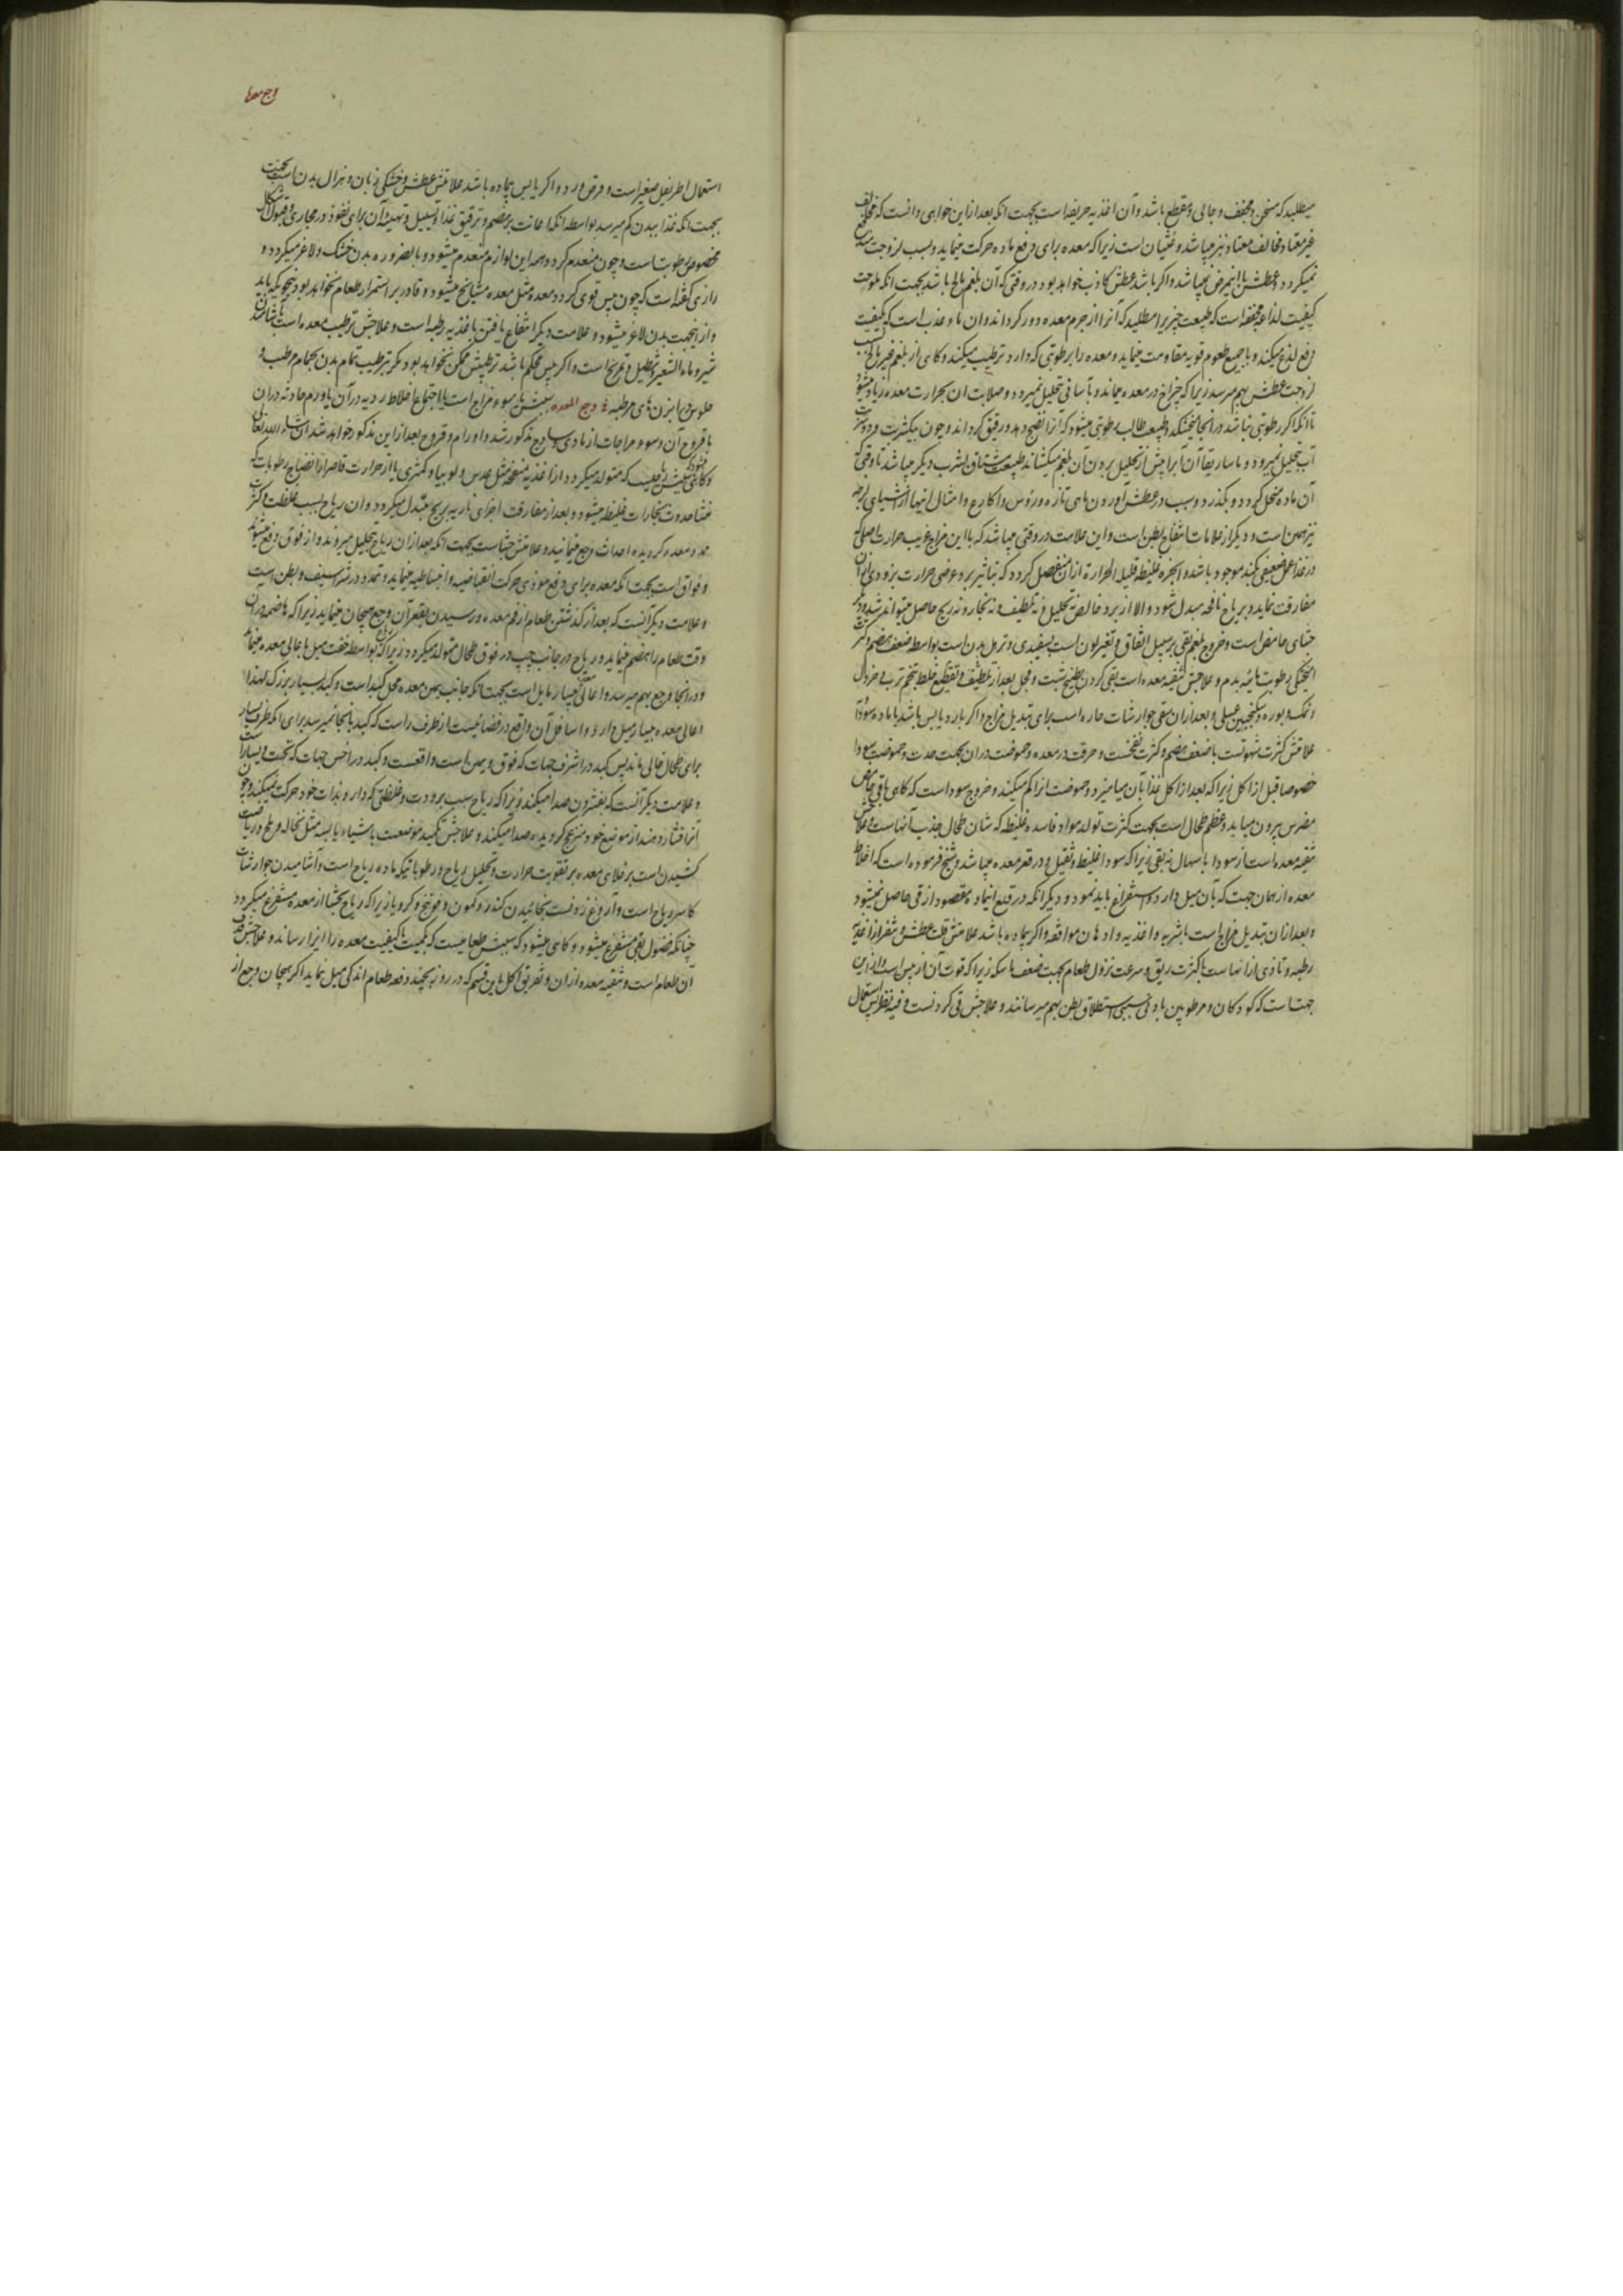 میطلبد که مسخن و مجفف و جالی و مقطع باشد و آن اغذیه حریفه است بجهت انکه بعد ازین خواهی دانست که
غیر معتاد و مخالف معتاد نیز میباشد و غثیان است زیرا که معده برای دفع ماده حرکت مینماید و بسبب لزوجت
نمیکردد و عطش با این مرض نمیباشد و اکر باشد عطش کاذب خواهد بود در وقتی که آن بلغم مالح باشد بجهت انکه ملوحت
کیفیت لذاعه مجففه است که طبیعت چیزیرا میطلبد که آنرا از جرم معده دور کرداند و ان ماء عذب است که بکیفیت
دفع لذع میکند و با جمیع طعوم قویه مقاومت مینماید و معده را برطوبتی که دارد ترطیب میکند و کاهی از بلغم غیر مالح
لزوجت عطش بهم میرسد زیرا که چراغ در معده میماند و بآسانی تحلیل نمیرود و صلابت ان بحرارت معده زیاد میشود
تا انکه اکر رطوبتی نباشد در انجا میخشکد و طبیعت طالب رطوبتی میشود که آنرا نضج دهد و رقیق کرداند و چون بیکشربت
آب تحلیل نمیرود و ماساریقا آن آبرا پیش از تحلیل بردن آن بلغم میکشاند طبیعت مشتاق شرب دیکر میباشد تا وقتی که
آن ماده منحل کردد و بکذرد و سبب در عطش آوردن ماهی تازه و رؤس و اکارع و امثال اینها از اشیای لزجه
نیز همین است و دیکر از علامات انتفاخ بطن است و این علامت در وقتی میباشد که با این مزاج غریب حرارت اصلی که
در غذا عمل ضعیفی بکند موجود باشد و ابخره غلیظه قلیله الحرارة ازان منفصل کردد که بتاثیر برد عرضی حرارت بزودی ازان
مفارقت نماید و بریاح نافخه مبدل شود و الا از برد خالص نه تحلیل و نه تلطیف و نه بخار و نه ریح حاصل میتواند شد و دیکر
جشای حامض است و خروج بلغم بقی بر سبیل اتفاق و تغیر لون است بسفیدی و ترهل بدن است بواسطه ضعف هضم و کثرت
رطوبت مائیه بدم و علاجش تنقیه معده است بقی کردن بطبیخ شبت و فجل بعد از تلطیف و تقطیع خلط بتخم ترب و خردل
و نمک و بوره و سکنجبین عسلی و بعد ازان سقی جوارشات حاره است برای تبدیل مزاج و اکر بارد یابس باشد با ماده سوداء
علامتش کثرت شهوتست با ضعف هضم و کثرت نفخست و حرقت در معده و حموضت دران بجهت حدت و حموضت سودا
خصوصا قبل از اکل زیرا که بعد از اکل غذا بآن میامیزد و حموضت انرا کم میکند و خروج سوداست که کاهی باقی حامض
مضرس بیرون میاید و عظم طحال است بجهت کثرت تولد مواد فاسده غلیظه که شان طحال جذب آنهاست و علاجش
تنقیه معده است از سودا باسهال نه بقی زیرا که سودا غلیظ و ثقیل و در قعر معده میباشد و شیخ فرموده است که اخلاط
معده از همان جهت که بآن میل دارد استفراغ باید نمود و دیکر انکه در قلع اینماده مقصود از قی حاصل نمیشود
و بعد ازان تبدیل مزاج است باشربه و اغذیه و ادهان موافقه و اکر بیماده باشد علامتش قلت عطش و تنفر از اغذیه
رطبه و تاذی از انهاست با کثرت ریق و سرعت نزول طعام بجهت ضعف ماسکه زیرا که قوت آن از یبس است و از این
جهتست که کودکان و مرطوبین بادنی سببی استطلاق بطن بهم میرسانند و علاجش قی کردنست و فیه نظر پس استعمال
وجع معده
استعمال اطریفل صغیر است و قرص ورد و اکر یابس بیماده باشد علامتش عطش و خشکی زبان و هزال بدن است
بجهت انکه غذا ببدن کم میرسد بواسطه انکه اعانت بر هضم و ترقیق غذا و تسییل و تهیئه آن برای نفوذ در مجاری و قبول اشکال
مخصوص برطوبتست و چون منعدم کردد همه این لوازم منعدم میشود و بالضروره بدن خشک و لاغر میکردد و
رازی کفته است که چون یبس قوی کردد معده مثل معده مشایخ میشود و قادر بر استمرار طعام نخواهد بود بنحویکه باید
و از اینجهت بدن لاغر میشود و علامت دیکر انتفاع یافتن باغذیه رطبه است و علاجش ترطیب معده است
شیر و ماء الشعیر و تنطیل و تمریخ است و اکر یبس محکم باشد ترطیبش ممکن نخواهد بود مکر بترطیب تمام بدن بحمام مرطب و
جلوس در ابزن های مرطبه وجع المعده سببش یا سوء مزاج است یا اجتماع اخلاط ردیه در آن یا ورم حادث در ان
یا قروح آن و سوء مزاجات از مادی و ساذج مذکور شد و اورام و قروح بعد از این مذکور خواهد شد ان شاء الله تعالی
و کاهی سببش ریاحیست که متولد میکردد از اغذیه منفخه مثل عدس و لوبیا و کمثری یا از حرارت قاصر از انضاج رطوبات که
منشاء حدوث بخارات غلیظه میشود و بعد از مفارقت اجزای ناریه بریح مبدل میکردد و ان ریاح بسبب غلظت و کثرت
ممدد معده کردیده احداث وجع مینمایند و علامتش جشاست بجهت انکه بعد ازان ریاح تحلیل میرود و از فوق دفع میشود
و فواق است بجهت انکه معده برای دفع موذی حرکت انقباضیه و انبساطیه مینماید و تمدد در شراسیف و بطن است
و علامت دیکر آنست که بعد از کذشتن طعام از فم معده و رسیدن بقعر آن وجع هیجان مینماید زیرا که هاضمه در ان
وقت طعام را هضم مینماید و ریاح در جانب چپ در فوق طحال متولد میکردد زیرا که بواسطه خفت میل باعالی معده مینماید
و در انجا وجع بهم میرسد و اعالی معده بیسار مایل است بجهت انکه جانب یمین معده محل کبد است و کبد بسیار بزرک لهذا
اعالی معده بیسار میل دارد و اسافل آن واقع در فضائیست از طرف راست که کبد بانجا نمیرسد برای انکه طرف یسار
برای طحال خالی ماند پس کبد در اشرف جهات که فوق و یمین است واقعست و کبد در اخس جهات که تحت و یسار است
و علامت دیکر آنست که بفشردن صدا میکند زیرا که ریاح بسبب برودت و غلظتی که دارد بذات خود حرکت نمیکند و چون
آنرا فشار دهند از موضع خود منزعج کردیده صدا میکند و علاجش تکمید موضعست باشیاء یابسه مثل نخاله و ملح و ریاضت
کشیدن است بر خلای معده بر تقویت حرارت و تحلیل ریاح و رطوباتیکه ماده ریاح است و آشامیدن جوارشات
کاسر ریاح است و آروغ زدنست بخائیدن کندر و کمون و فوتنج و کرویا زیرا که ریاح بجشا از معده مستفرغ میکردد
چنانکه فضول بقی مستفرغ میشود و کاهی میشود که سببش طعامیست که بکمیت یا کیفیت معده را ایذا رساند و علاجش قذف
آن طعام است و تنقیه معده از ان و تفریق اکل باین قسم که در روز بچند دفعه طعام اندکی میل نماید اکر هیجان وجع از